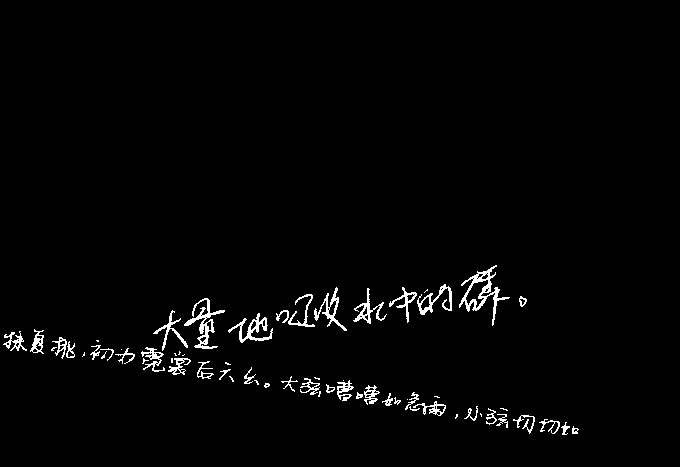 大量地吸收水中的磷。
抹复挑,初为霓裳后六幺。大弦嘈嘈如急雨,小弦切切如